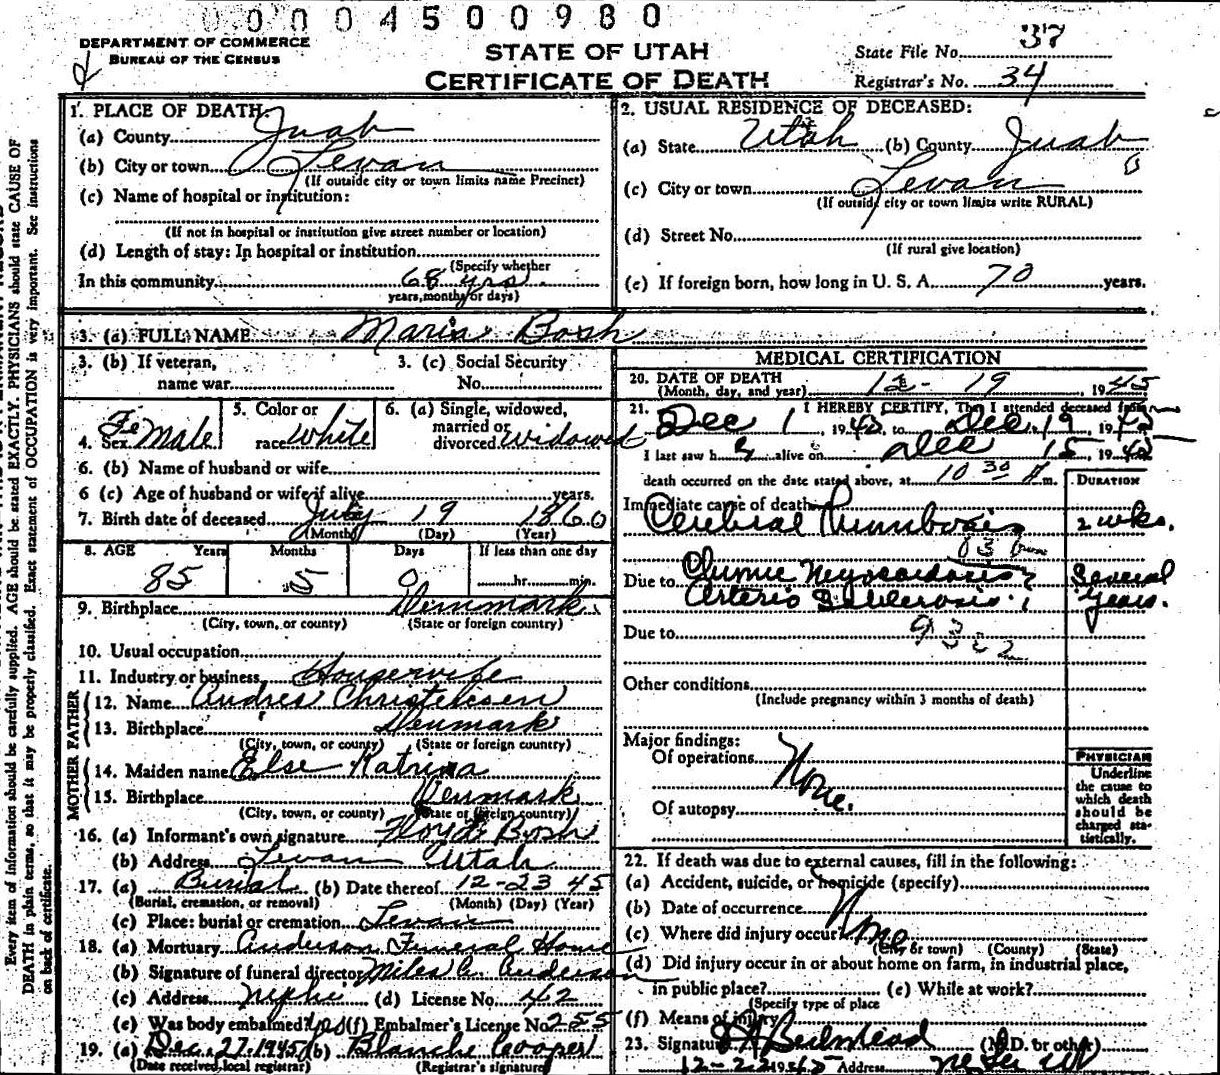 00004500980
DEPARTMENT OF COMMERCE
BUREAU OF THE CENSUS
STATE OF UTAH
CERTIFICATE OF DEATH
State File No. 37
Registrar's No. 34
Every item of information should be carefully supplied. AGE should be stated EXACTLY. PHYSICIANS should state CAUSE OF
DEATH in plain terms, so that it may be properly classified. Exact statement of OCCUPATION is very important. See instructions
on back of certificate.
1. PLACE OF DEATH:
(a) County Juab
(b) City or town Levan
(If outside city or town limits name Precinct)
(c) Name of hospital or institution:
(If not in hospital or institution give street number or location)
(d) Length of stay: In hospital or institution
(Specify whether
In this community 68 yrs.
years, months or days)
2. USUAL RESIDENCE OF DECEASED:
(a) State Utah (b) County Juab
(c) City or town Levan
(If outside city or town limits write RURAL)
(d) Street No.
(If rural give location)
(e) If foreign born, how long in U. S. A. 70 years.
3. (a) FULL NAME Maria Bosh
3. (b) If veteran,
name war
3. (c) Social Security
No.
4. Sex Fe Male
5. Color or
race White
6. (a) Single, widowed,
married or
divorced widowed
6. (b) Name of husband or wife
6 (c) Age of husband or wife if alive years.
7. Birth date of deceased July 19 1860
(Month) (Day) (Year)
8. AGE Years Months Days If less than one day
85 5 0 hr. min.
9. Birthplace Denmark
(City, town, or county) (State or foreign country)
10. Usual occupation
11. Industry or business Housewife
FATHER
12. Name Andres Christensen
13. Birthplace Denmark
(City, town, or county) (State or foreign country)
MOTHER
14. Maiden name Else Katrina
15. Birthplace Denmark
(City, town, or county) (State or foreign country)
16. (a) Informant's own signature Floyd Bosh
(b) Address Levan Utah
17. (a) Burial (b) Date thereof 12-23 45
(Burial, cremation, or removal) (Month) (Day) (Year)
(c) Place: burial or cremation Levan
18. (a) Mortuary Anderson Funeral Home
(b) Signature of funeral director Miles Anderson
(c) Address Nephi (d) License No. 42
(e) Was body embalmed? yes (f) Embalmer's License No. 255
19. (a) Dec. 27. 1945 (b) Blanche Cooper
(Date received local registrar) (Registrar's signature)
MEDICAL CERTIFICATION
20. DATE OF DEATH
(Month, day, and year) 12 - 19, 1945
21. I HEREBY CERTIFY, That I attended deceased from
Dec 1 1945, to Dec. 19, 1945
I last saw h alive on Dec 15, 1945
death occurred on the date stated above, at 10 30 m.
DURATION
Immediate cause of death
Cerebral Thrombosis 2 wks.
Due to Chronic Myocardosis Several
Arterio Sclerosis Years.
Due to
Other conditions
(Include pregnancy within 3 months of death)
Major findings:
Of operations None.
Of autopsy
PHYSICIAN
Underline
the cause to
which death
should be
charged sta-
tistically.
22. If death was due to external causes, fill in the following:
(a) Accident, suicide, or homicide (specify)
(b) Date of occurrence None
(c) Where did injury occur?
(City or town) (County) (State)
(d) Did injury occur in or about home on farm, in industrial place,
in public place? (e) While at work?
(Specify type of place
(f) Means of injury
23. Signature (M.D. or other)
12-22 1945 Address